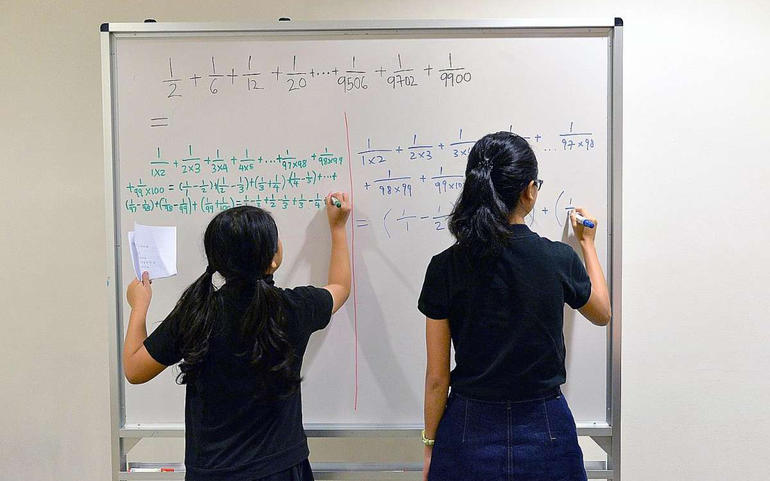 1/2 + 1/6 + 1/12 + 1/20 + ... + 1/9506 + 1/9702 + 1/9900
=
1/1×2 + 1/2×3 + 1/3×4 + 1/4×5 + ... + 1/97×98 + 1/98×99
+ 1/99×100 = (1/1 - 1/2) + (1/2 - 1/3) + (1/3 + 1/4) + (1/4 - 1/5) + ... +
(1/97 - 1/98) + (1/98 - 1/99) + (1/99 + 1/100) = 1/1 - 1/2 + 1/2 - 1/3 + 1/3 - 1/4
1/1×2 + 1/2×3 + + ... 1/97×98
+ 1/98×99 +
= (1/1 - 1/2 + (